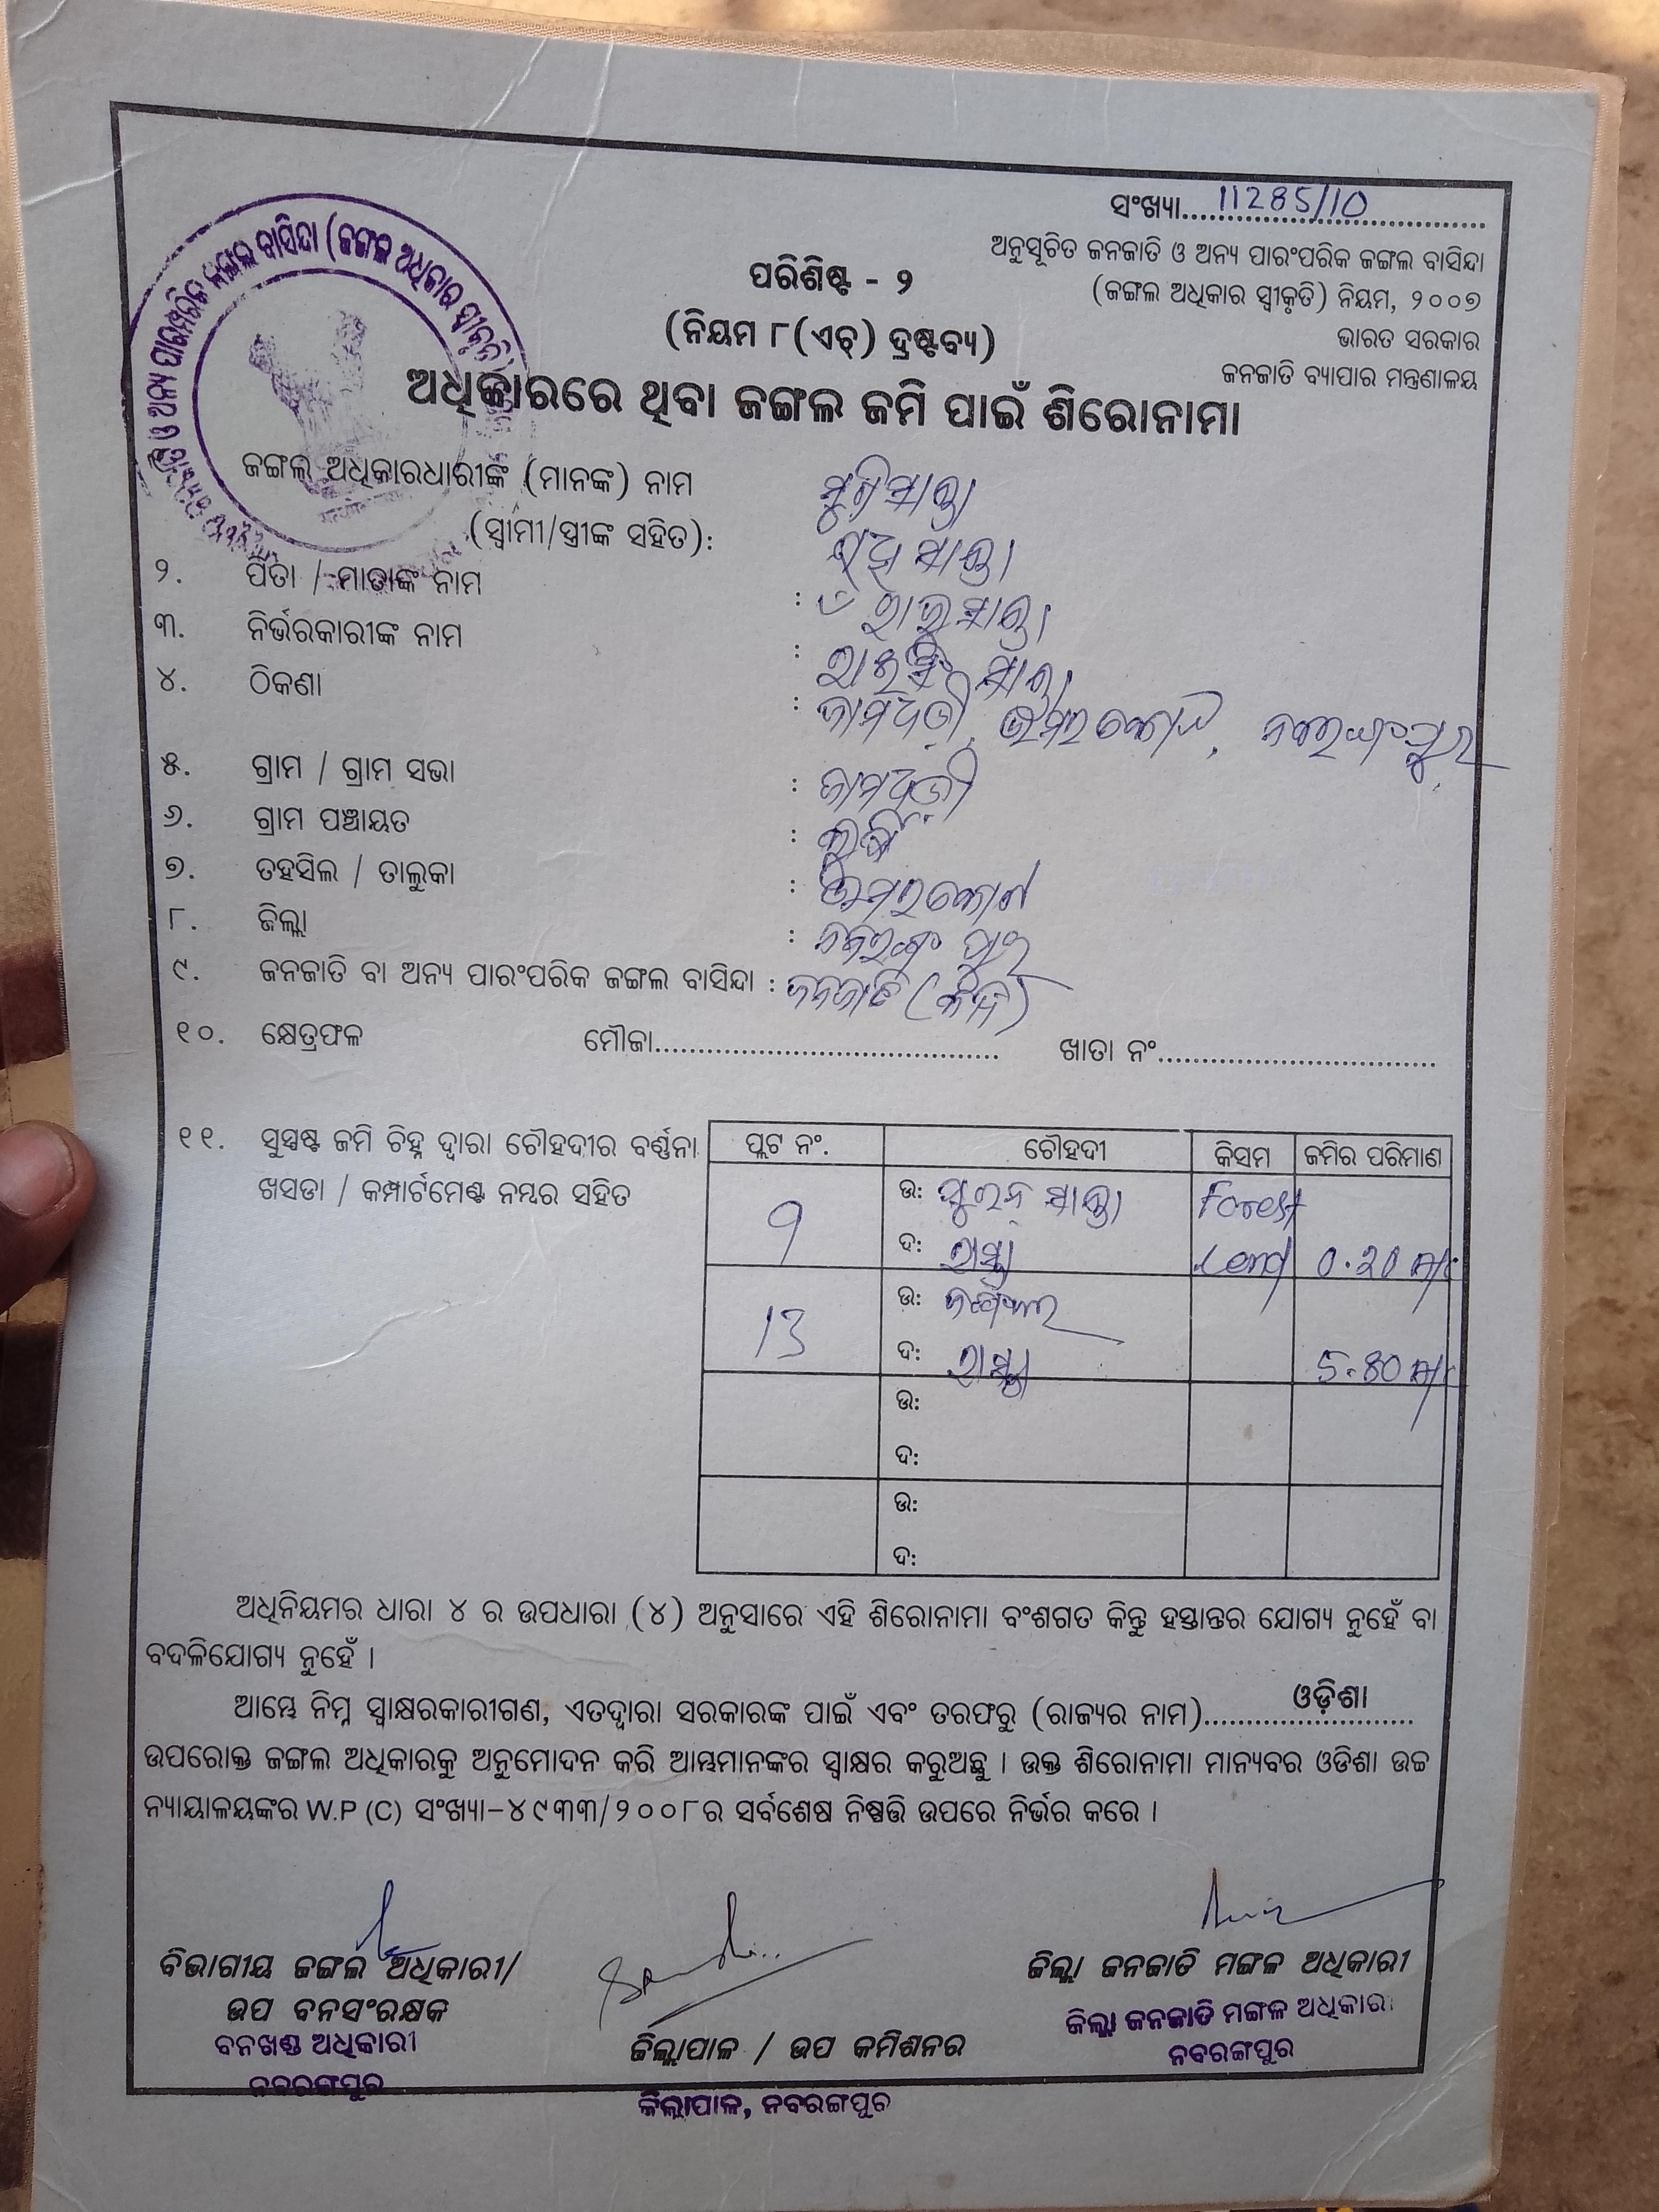 ସଂଖ୍ୟା 11285/10
ଅନୁସୂଚିତ ଜନଜାତି ଓ ଅନ୍ୟ ପାରଂପରିକ ଜଙ୍ଗଲ ବାସିନ୍ଦା
(ଜଙ୍ଗଲ ଅଧିକାର ସ୍ୱୀକୃତି) ନିୟମ, ୨୦୦୭
ଭାରତ ସରକାର
ଜନଜାତି ବ୍ୟାପାର ମନ୍ତ୍ରଣାଳୟ
ପରିଶିଷ୍ଟ - ୨
(ନିୟମ ୮(ଏଚ୍) ଦ୍ରଷ୍ଟବ୍ୟ)
ଅଧିକାରରେ ଥିବା ଜଙ୍ଗଲ ଜମି ପାଇଁ ଶିରୋନାମା
ଜଙ୍ଗଲ ଅଧିକାରଧାରୀଙ୍କ (ମାନଙ୍କ) ନାମ
(ସ୍ୱାମୀ/ସ୍ତ୍ରୀଙ୍କ ସହିତ):
୨. ପିତା / ମାତାଙ୍କ ନାମ :
୩. ନିର୍ଭରକାରୀଙ୍କ ନାମ :
୪. ଠିକଣା :
୫. ଗ୍ରାମ / ଗ୍ରାମ ସଭା :
୬. ଗ୍ରାମ ପଞ୍ଚାୟତ :
୭. ତହସିଲ / ତାଲୁକା : ଉମରକୋଟ
୮. ଜିଲ୍ଲା : ନବରଙ୍ଗପୁର
୯. ଜନଜାତି ବା ଅନ୍ୟ ପାରଂପରିକ ଜଙ୍ଗଲ ବାସିନ୍ଦା : ଜନଜାତି
୧୦. କ୍ଷେତ୍ରଫଳ ମୌଜା ଖାତା ନଂ
୧୧. ସୁସ୍ପଷ୍ଟ ଜମି ଚିହ୍ନ ଦ୍ୱାରା ଚୌହଦୀର ବର୍ଣ୍ଣନା
ଖସଡା / କମ୍ପାର୍ଟମେଣ୍ଟ ନମ୍ବର ସହିତ
ପ୍ଲଟ ନଂ. ଚୌହଦୀ କିସମ ଜମିର ପରିମାଣ
9 ଉ: Forest
ଦ: ରାସ୍ତା Land 0.20
13 ଉ: ଜଙ୍ଗଲ
ଦ: ରାସ୍ତା 5.80
ଉ:
ଦ:
ଉ:
ଦ:
ଅଧିନିୟମର ଧାରା ୪ ର ଉପଧାରା (୪) ଅନୁସାରେ ଏହି ଶିରୋନାମା ବଂଶଗତ କିନ୍ତୁ ହସ୍ତାନ୍ତର ଯୋଗ୍ୟ ନୁହେଁ ବା
ବଦଳିଯୋଗ୍ୟ ନୁହେଁ ।
ଆମ୍ଭେ ନିମ୍ନ ସ୍ୱାକ୍ଷରକାରୀଗଣ, ଏତଦ୍ୱାରା ସରକାରଙ୍କ ପାଇଁ ଏବଂ ତରଫରୁ (ରାଜ୍ୟର ନାମ) ଓଡ଼ିଶା
ଉପରୋକ୍ତ ଜଙ୍ଗଲ ଅଧିକାରକୁ ଅନୁମୋଦନ କରି ଆମ୍ଭମାନଙ୍କର ସ୍ୱାକ୍ଷର କରୁଅଛୁ । ଉକ୍ତ ଶିରୋନାମା ମାନ୍ୟବର ଓଡିଶା ଉଚ୍ଚ
ନ୍ୟାୟାଳୟଙ୍କର W.P (C) ସଂଖ୍ୟା-୪୯୩୩/୨୦୦୮ର ସର୍ବଶେଷ ନିଷ୍ପତ୍ତି ଉପରେ ନିର୍ଭର କରେ ।
ବିଭାଗୀୟ ଜଙ୍ଗଲ ଅଧିକାରୀ/
ଉପ ବନସଂରକ୍ଷକ
ବନଖଣ୍ଡ ଅଧିକାରୀ
ନବରଙ୍ଗପୁର
ଜିଲ୍ଲାପାଳ / ଉପ କମିଶନର
ଜିଲ୍ଲାପାଳ, ନବରଙ୍ଗପୁର
ଜିଲ୍ଲା ଜନଜାତି ମଙ୍ଗଳ ଅଧିକାରୀ
ଜିଲ୍ଲା ଜନଜାତି ମଙ୍ଗଳ ଅଧିକାରୀ
ନବରଙ୍ଗପୁର